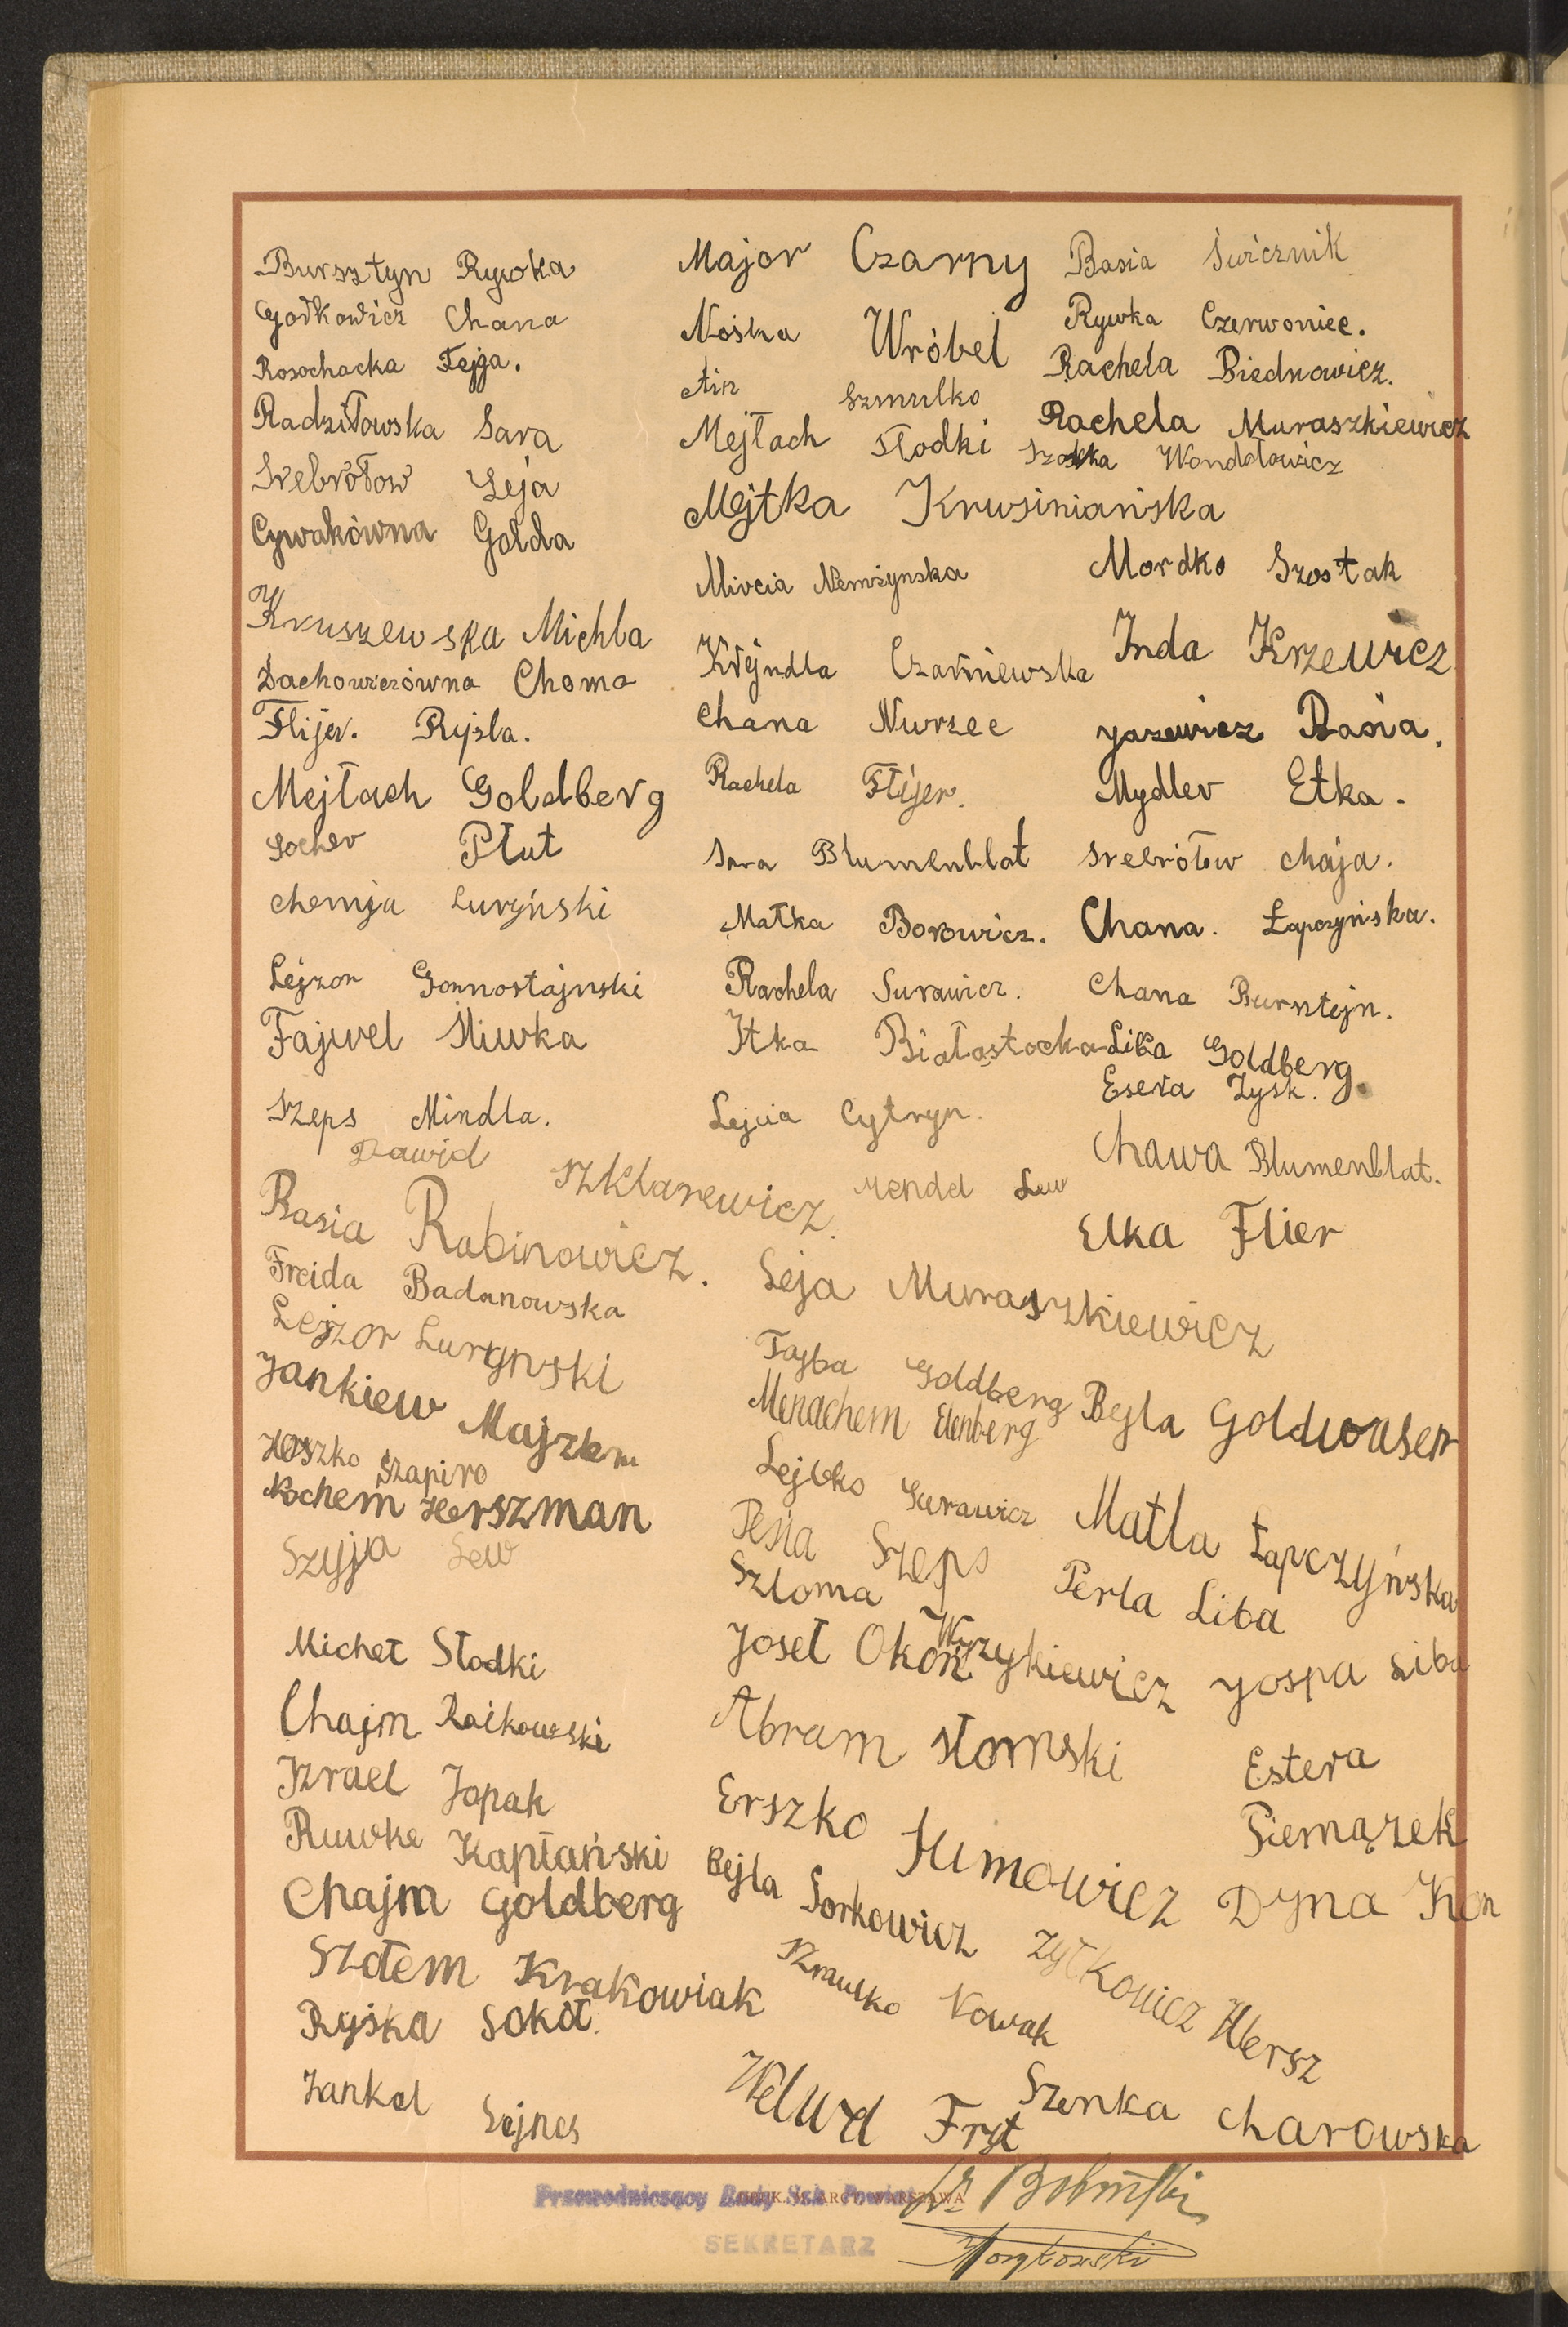 Bursztyn Rywka
Godkowicz Chana
Rosochacka Fejga.
Radziłowska Sara
Srebrołow Leja
Cywakówna Golda
Kruszewska Michla
Dachowiczówna Choma
Flijer. Ryjzla.
Mejłach Goldberg
Socher Płut
Chemja Luryński
Lejzor Gornostajnski
Fajwel Śliwka
Szeps Mindla.
Dawid Szklarewicz.
Basia Rabinowicz.
Freida Badanowska
Lejzor Lurynski
Jankiew Majzler
Joszko Szapiro
Nochem Herszman
Szyja Lew
Micheł Słodki
Chajm Raikowski
Izrael Topak
Ruwke Kapłański
Chajm Goldberg
Szołem Krakowiak
Ryśka Sokół.
Jankel Lejnes
Major Czarny
Nośka Wróbel
Szmulko
Mejłach Słodki
Mejtka Krusiniańska
Mircia Nemżynska
Krejndla Czarniewska
Chana Nurzec
Rachela Flijer.
Sara Blumenblat
Małka Borowicz.
Rachela Surawicz.
Itka Białostocka
Lejcia Cytryn.
Mendel Lew
Leja Muraszkiewicz
Fajba Goldberg
Menachem Elenberg
Lejbko Surawicz
Pesia Szeps
Szloma Wyzykiewicz
Joseł Okoń
Abram Słomski
Erszko Klimowicz
Bejla Sorkowicz
Izraulko Nowak
Welwel Fryt
Basia Świcznik
Rywka Czerwoniec.
Rachela Biednowicz.
Rachela Muraszkiewicz
Wondołowicz
Mordko Szostak
Inda Krzewicz
Jazewicz Basia.
Mydler Etka.
Srebrołow Chaja.
Chana. Łapczyńska.
Chana Burntejn.
Liba Goldberg.
Estera Zysk.
Chawa Blumenblat.
Elka Flier
Bejla Goldwaser
Matla Łapczyńska
Perla Liba
Jospa Liba
Estera Piemązek
Dyna Kon
Zyłkowicz Hersz
Szenka Charowska
Przewodniczący Rady Szk. Powiat.
SEKRETARZ